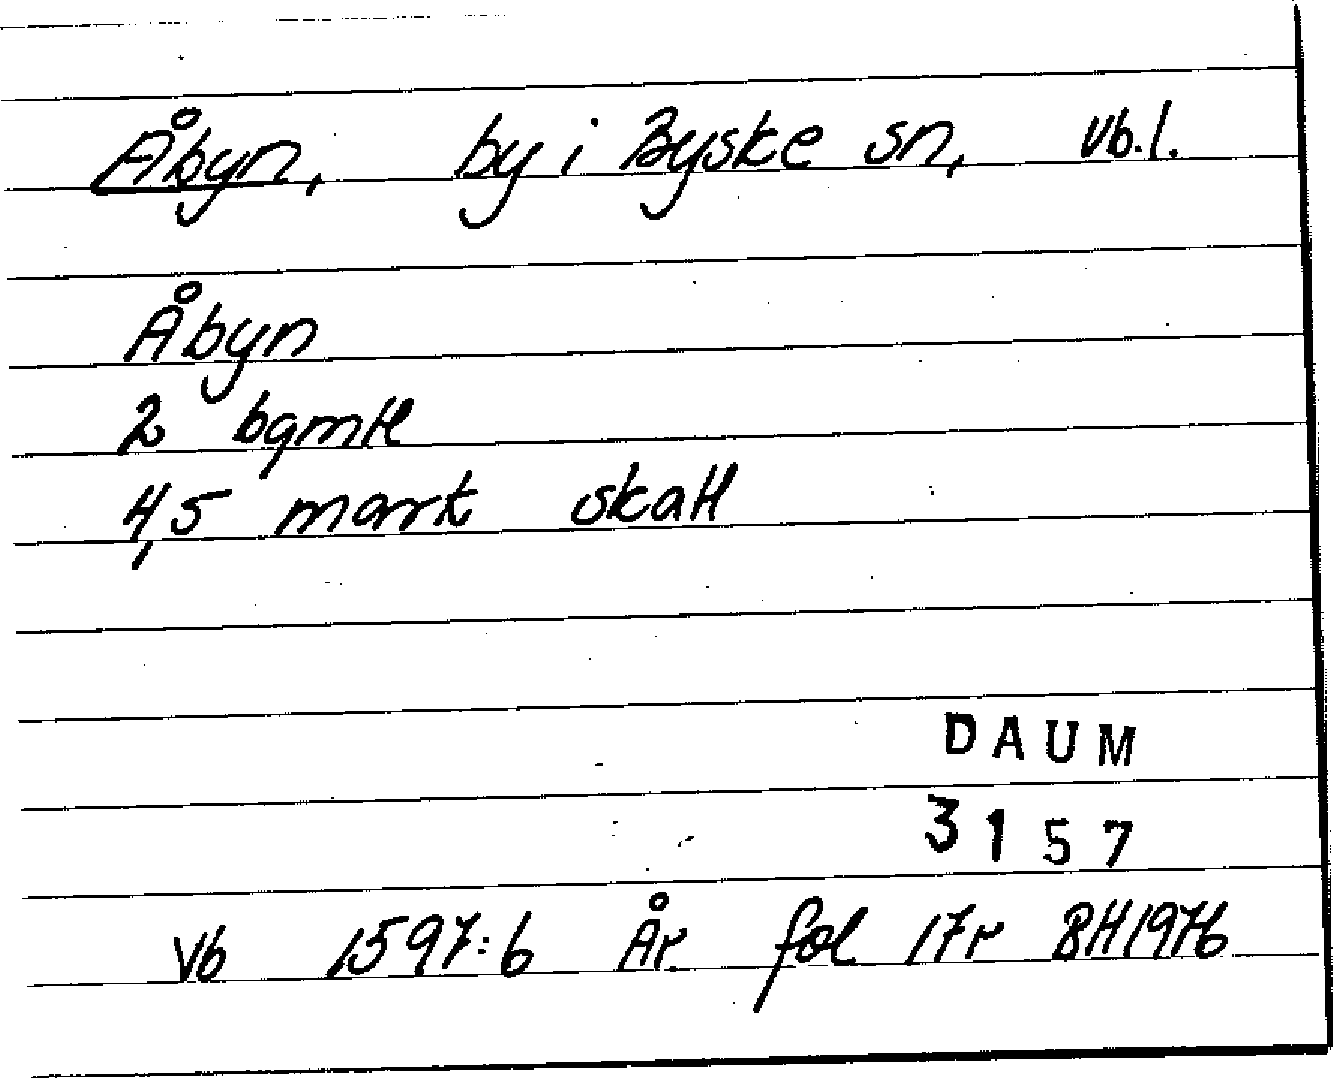 Åbyn, by i Byske sn, Vb.l.
Åbyn
2 bgmtl
4,5 mark skatt
DAUM
3157
Vb 1597:6 År fol 17r BH1976